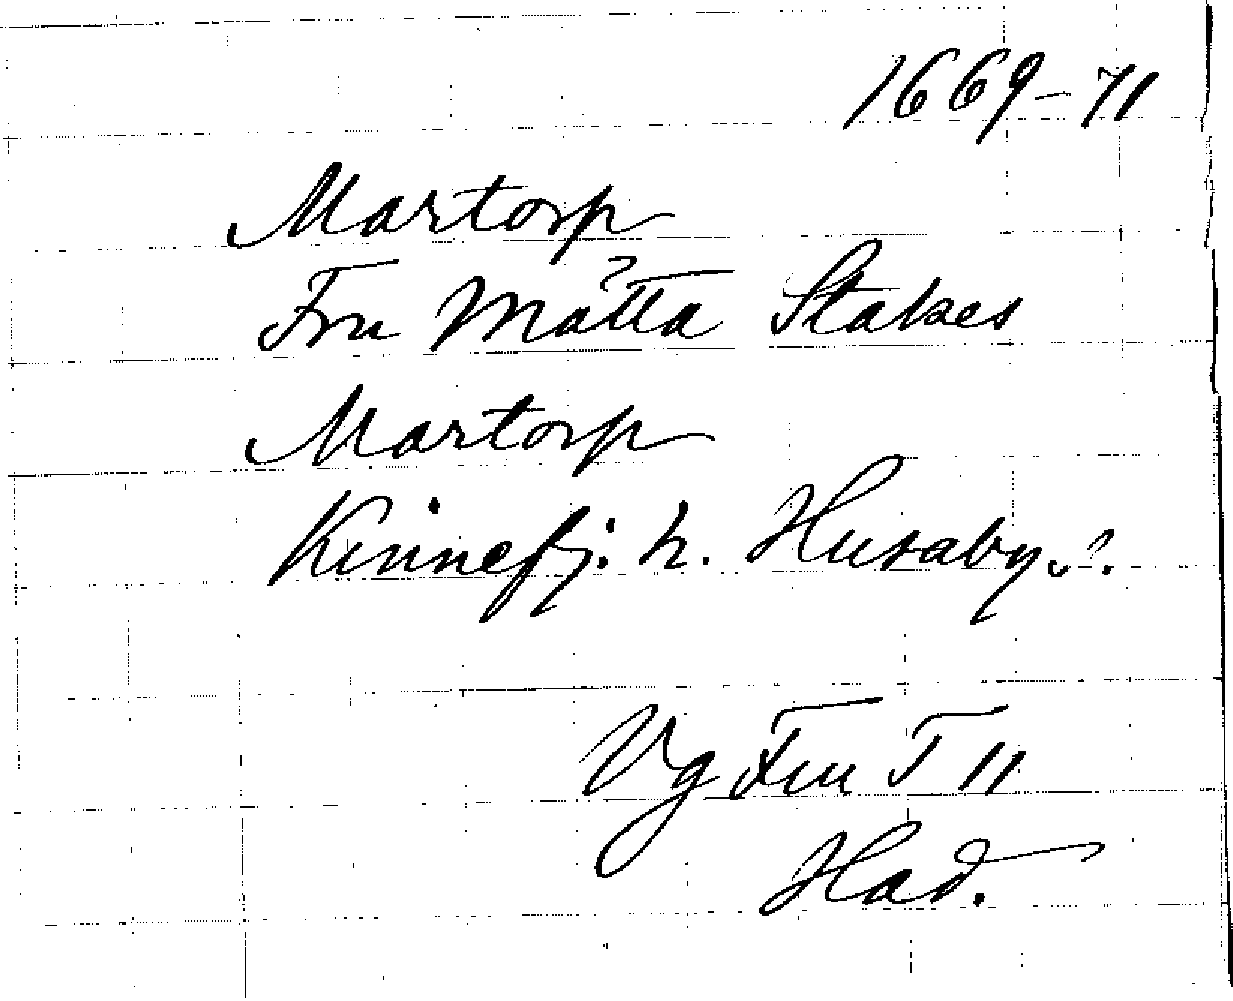 1669-71
Martorp
Fru Mätta Stakes
Martorp
Kinnefj. h. Husaby s.
Vg Fru T 11
Had.